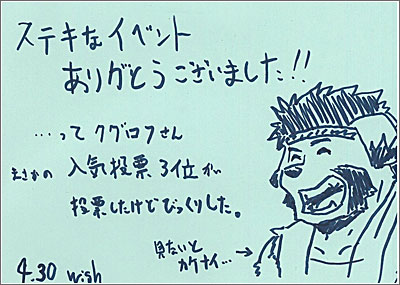 ステキなイベント
ありがとうございました!!
…って ククグロフさん
まさかの 入気投票 3位が
投票したけどびっくりした。
見ないと
カケナイ… →
4.30 wish